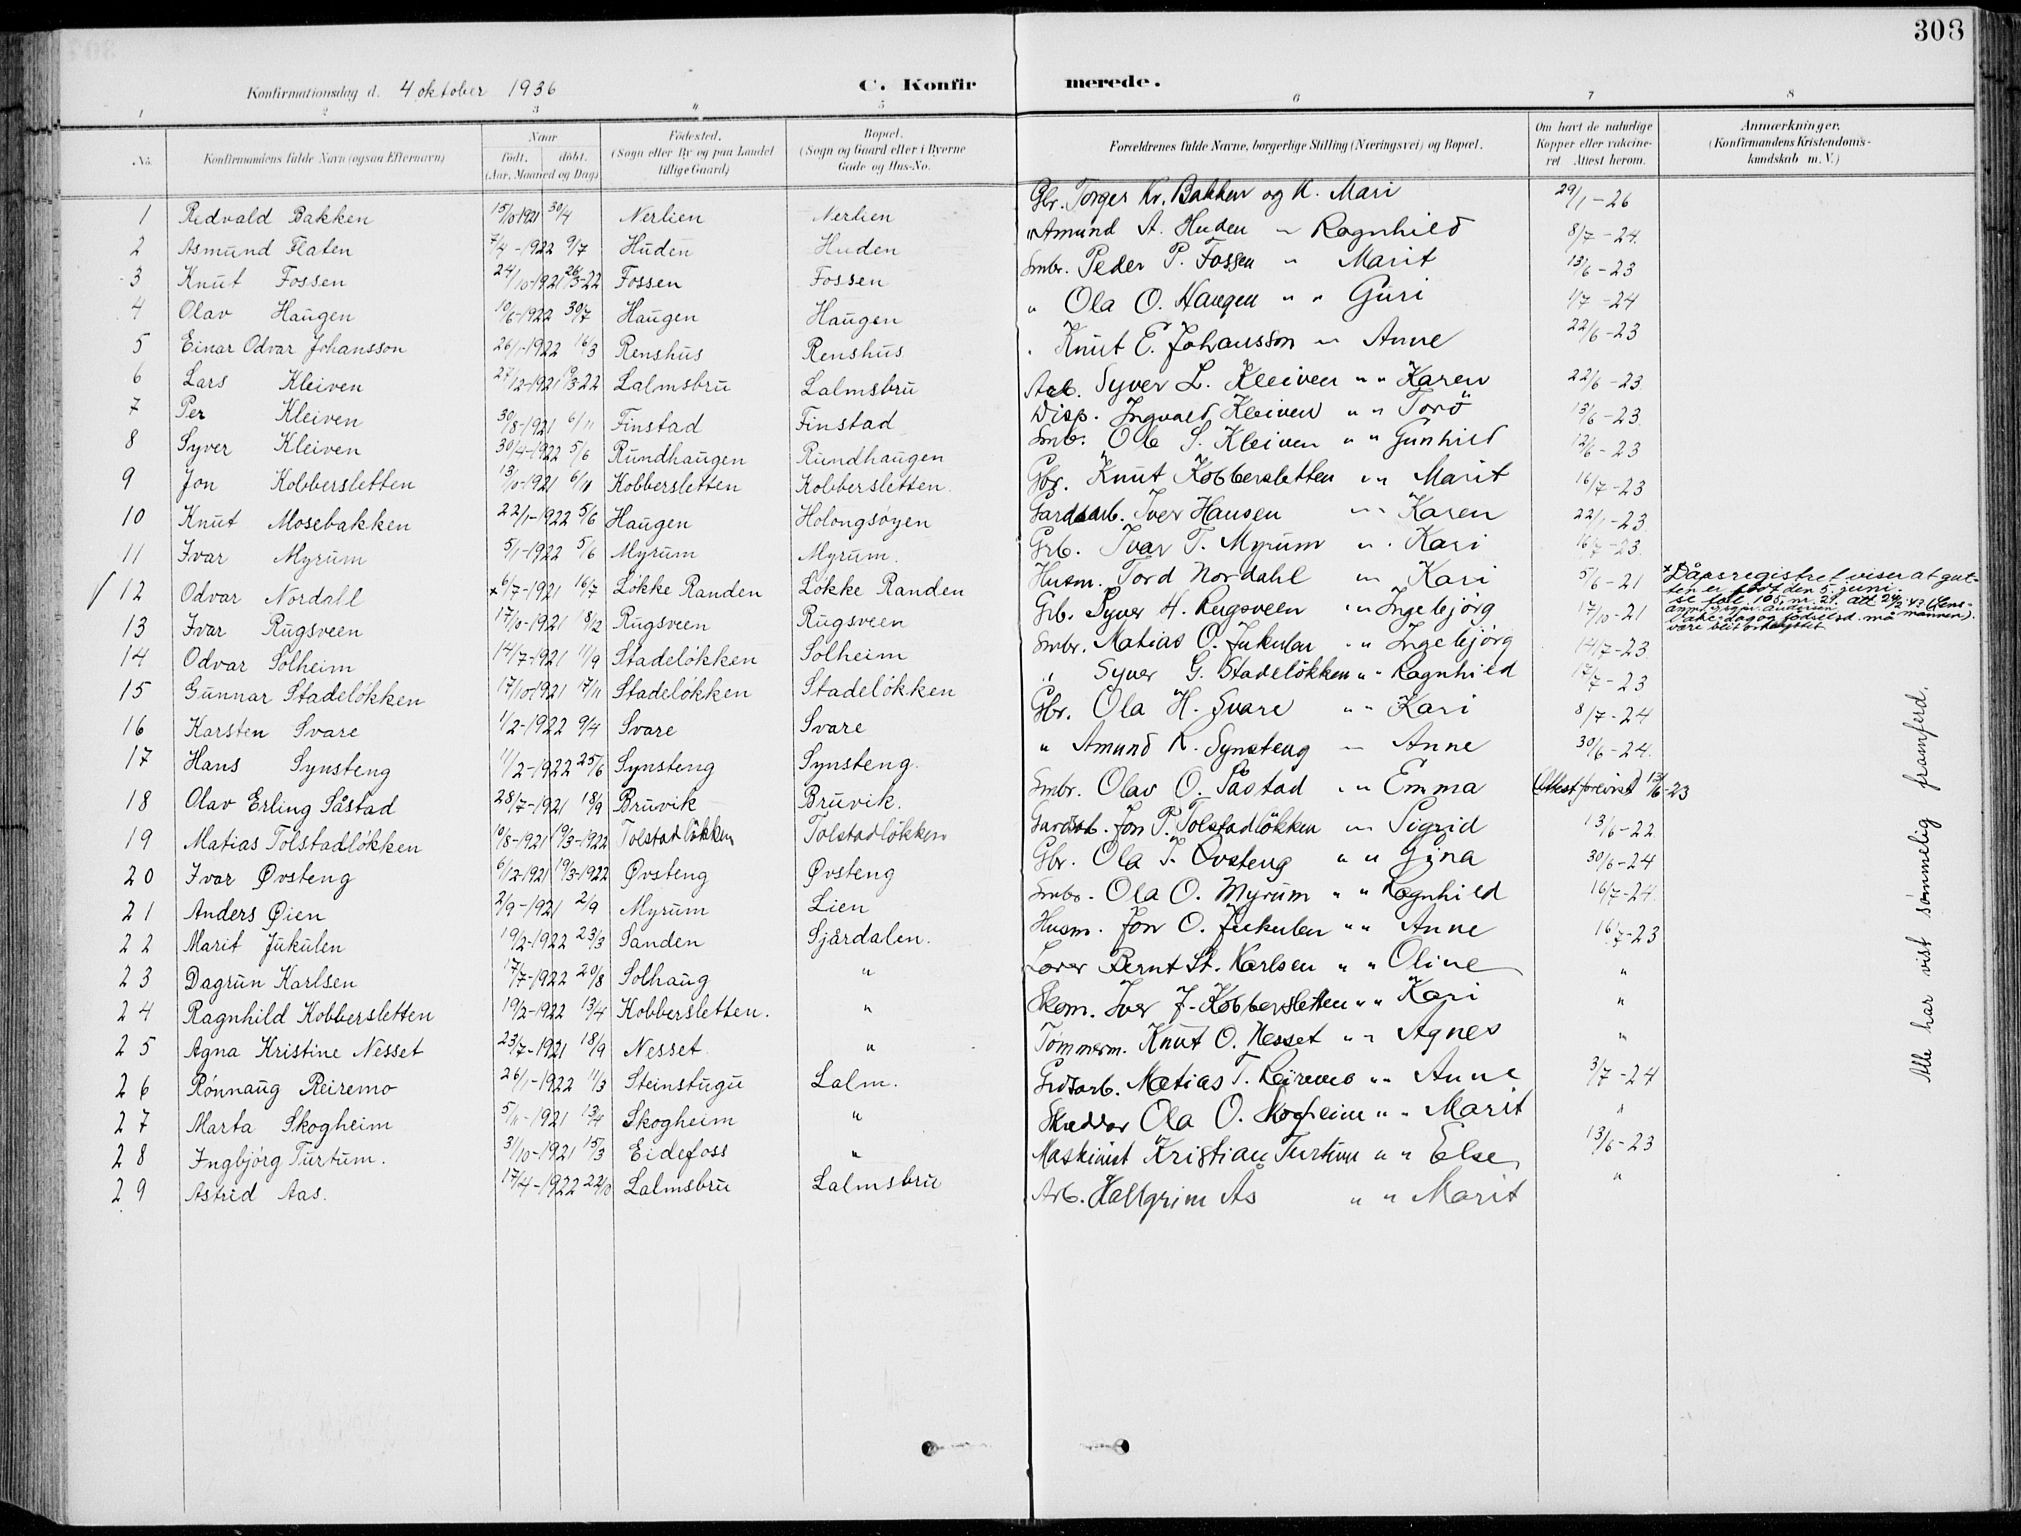 308
Konfirmationsdag d. 4 oktober 1936 C. Konfirmerede.
1 2 3 4 5 6 7 8
No. Konfirmandens fulde Navn (ogsaa Efternavn) Naar født. døbt. (Aar, Maaned og Dag) Fødested. (Sogn eller By og paa Landet tillige Gaard) Bopæl. (Sogn og Gaard eller i Byerne Gade og Hus-No. Forældrenes fulde Navne, borgerlige Stilling (Næringsvei) og Bopæl. Om havt de naturlige Kopper eller vakcineret Attest herom. Anmærkninger. (Konfirmandens Kristendomskundskab m. V.)
1 Redvald Bakken 15/10 1921 30/4 Nerlien Nerlien Gbr. Torger Kr. Bakken og K. Mari 29/1-26
2 Asmund Flaten 7/4-1922 9/7 Huden Huden " Amund A. Huden " Ragnhild 8/7-24.
3 Knut Fossen 24/10-1921 26/3-22 Fossen Fossen Smbr. Peder P. Fossen " Marit 13/6-23
4 Olav Haugen 10/6-1922 30/7 Haugen Haugen " Ola O. Haugen " " Guri 1/7-24
5 Einar Odvar Johansson 26/1-1922 16/3 Renshus Renshus " Knut E. Johansson " Anne 22/6-23
6 Lars Kleiven 27/12-1921 19/3-22 Lalmsbru Lalmsbru Arb. Syver L. Kleiven " " Karen 22/6-23
7 Per Kleiven 30/8-1921 6/11 Finstad Finstad Disp. Ingvald Kleiven " " Torö 13/6-23.
8 Syver Kleiven 30/4-1922 5/6 Rundhaugen Rundhaugen Smb. Ole S. Kleiven " " Gunhild 12/6-23
9 Jon Kobbersletten 13/10-1921 6/11 Kobbersletten Kobbersletten. Gbr. Knut Kobbersletten " " Marit 16/7-23
10 Knut Mosebakken 22/1-1922 5/6 Haugen Holongsøyen Gardsarb. Iver Hansen " " Karen 22/1-23
11 Ivar Myrum 5/1-1922 5/6 Myrum Myrum. Grb. Ivar T. Myrum " . Kari 16/7-23.
12 Odvar Nordall x 6/7-1921 16/7 Løkke Randen Løkke Randen Husm. Tord Nordahl " " Kari 5/6-21 x Dåpsregistret viser at gutten er født den 5. juni.
13 Ivar Rugsveen 17/10-1921 18/12 Rugsveen Rugsveen Grb. Syver H. Rugsveen " " Ingebjørg 17/10-21
14 Odvar Solheim 14/7-1921 11/9 Stadeløkken Solheim Smbr. Matias O. Jukulen " " Ingebjørg 14/7-23
15 Gunnar Stadeløkken 17/10 1921 17/11 Stadeløkken Stadeløkken " Syver G. Stadeløkken " " Ragnhild 17/7-23
16 Karsten Svare 1/2-1922 9/4 Svare Svare Gbr. Ola H. Svare " " Kari 8/7-24
17 Hans Synsteng 11/2-1922 25/6 Synsteng Synsteng. " Amund K. Synsteng " Anne 30/6-24.
18 Olav Erling Såstad 28/7-1921 18/9 Bruvik Bruvik. Smbr. Olav O. Såstad " " Emma (Attest forevist) 13/6-23
19 Matias Tolstadløkken 10/8-1921 19/3-1922 Tolstadløkken Tolstadløkken Gardsarb. Jon P. Tolstadløkken " " Sigrid 13/6-22
20 Ivar Øvsteng 6/12-1921 19/3-1922 Øvsteng Øvsteng Gbr. Ola I. Øvsteng " " Gina 30/6-24
21 Anders Øien 2/9-1921 2/9 Myrum Lien Smbr. Ola O. Myrum " " Ragnhild 16/7-24.
22 Marit Jukulen 19/2-1922 23/3 Sanden Sjårdalen. Husm. Jon O. Jukulen " " Anne 16/7-23
23 Dagrun Karlsen 17/7-1922 20/8 Solhaug " Lærer Bernt St. Karlsen " " Oline "
24 Ragnhild Kobbersletten 19/2-1922 13/4 Kobbersletten. " Skom. Iver J. Kobbersletten " " Kari "
25 Agna Kristine Nesset 23/7-1921 18/9 Nesset " Tømmerm. Knut O. Nesset " " Agnes "
26 Rønnaug Reiremo 26/1-1922 11/3 Steinstugu Lalm. Grdsarb. Matias T. Reiremo " " Anne 3/7-24
27 Marta Skogheim 5/11-1921 13/4 Skogheim " Skreddar Ola O. Skogheim " " Marit "
28 Ingbjørg Turtum. 31/10-1921 15/3 Eidefoss " Maskinist Kristian Turtum " " Else 13/6-23
29 Astrid Aas. 17/4-1922 22/10 Lalmsbru Lalmsbru Arb. Hallgrim Ås " " Marit "
Alle har vist sømmelig framferd.